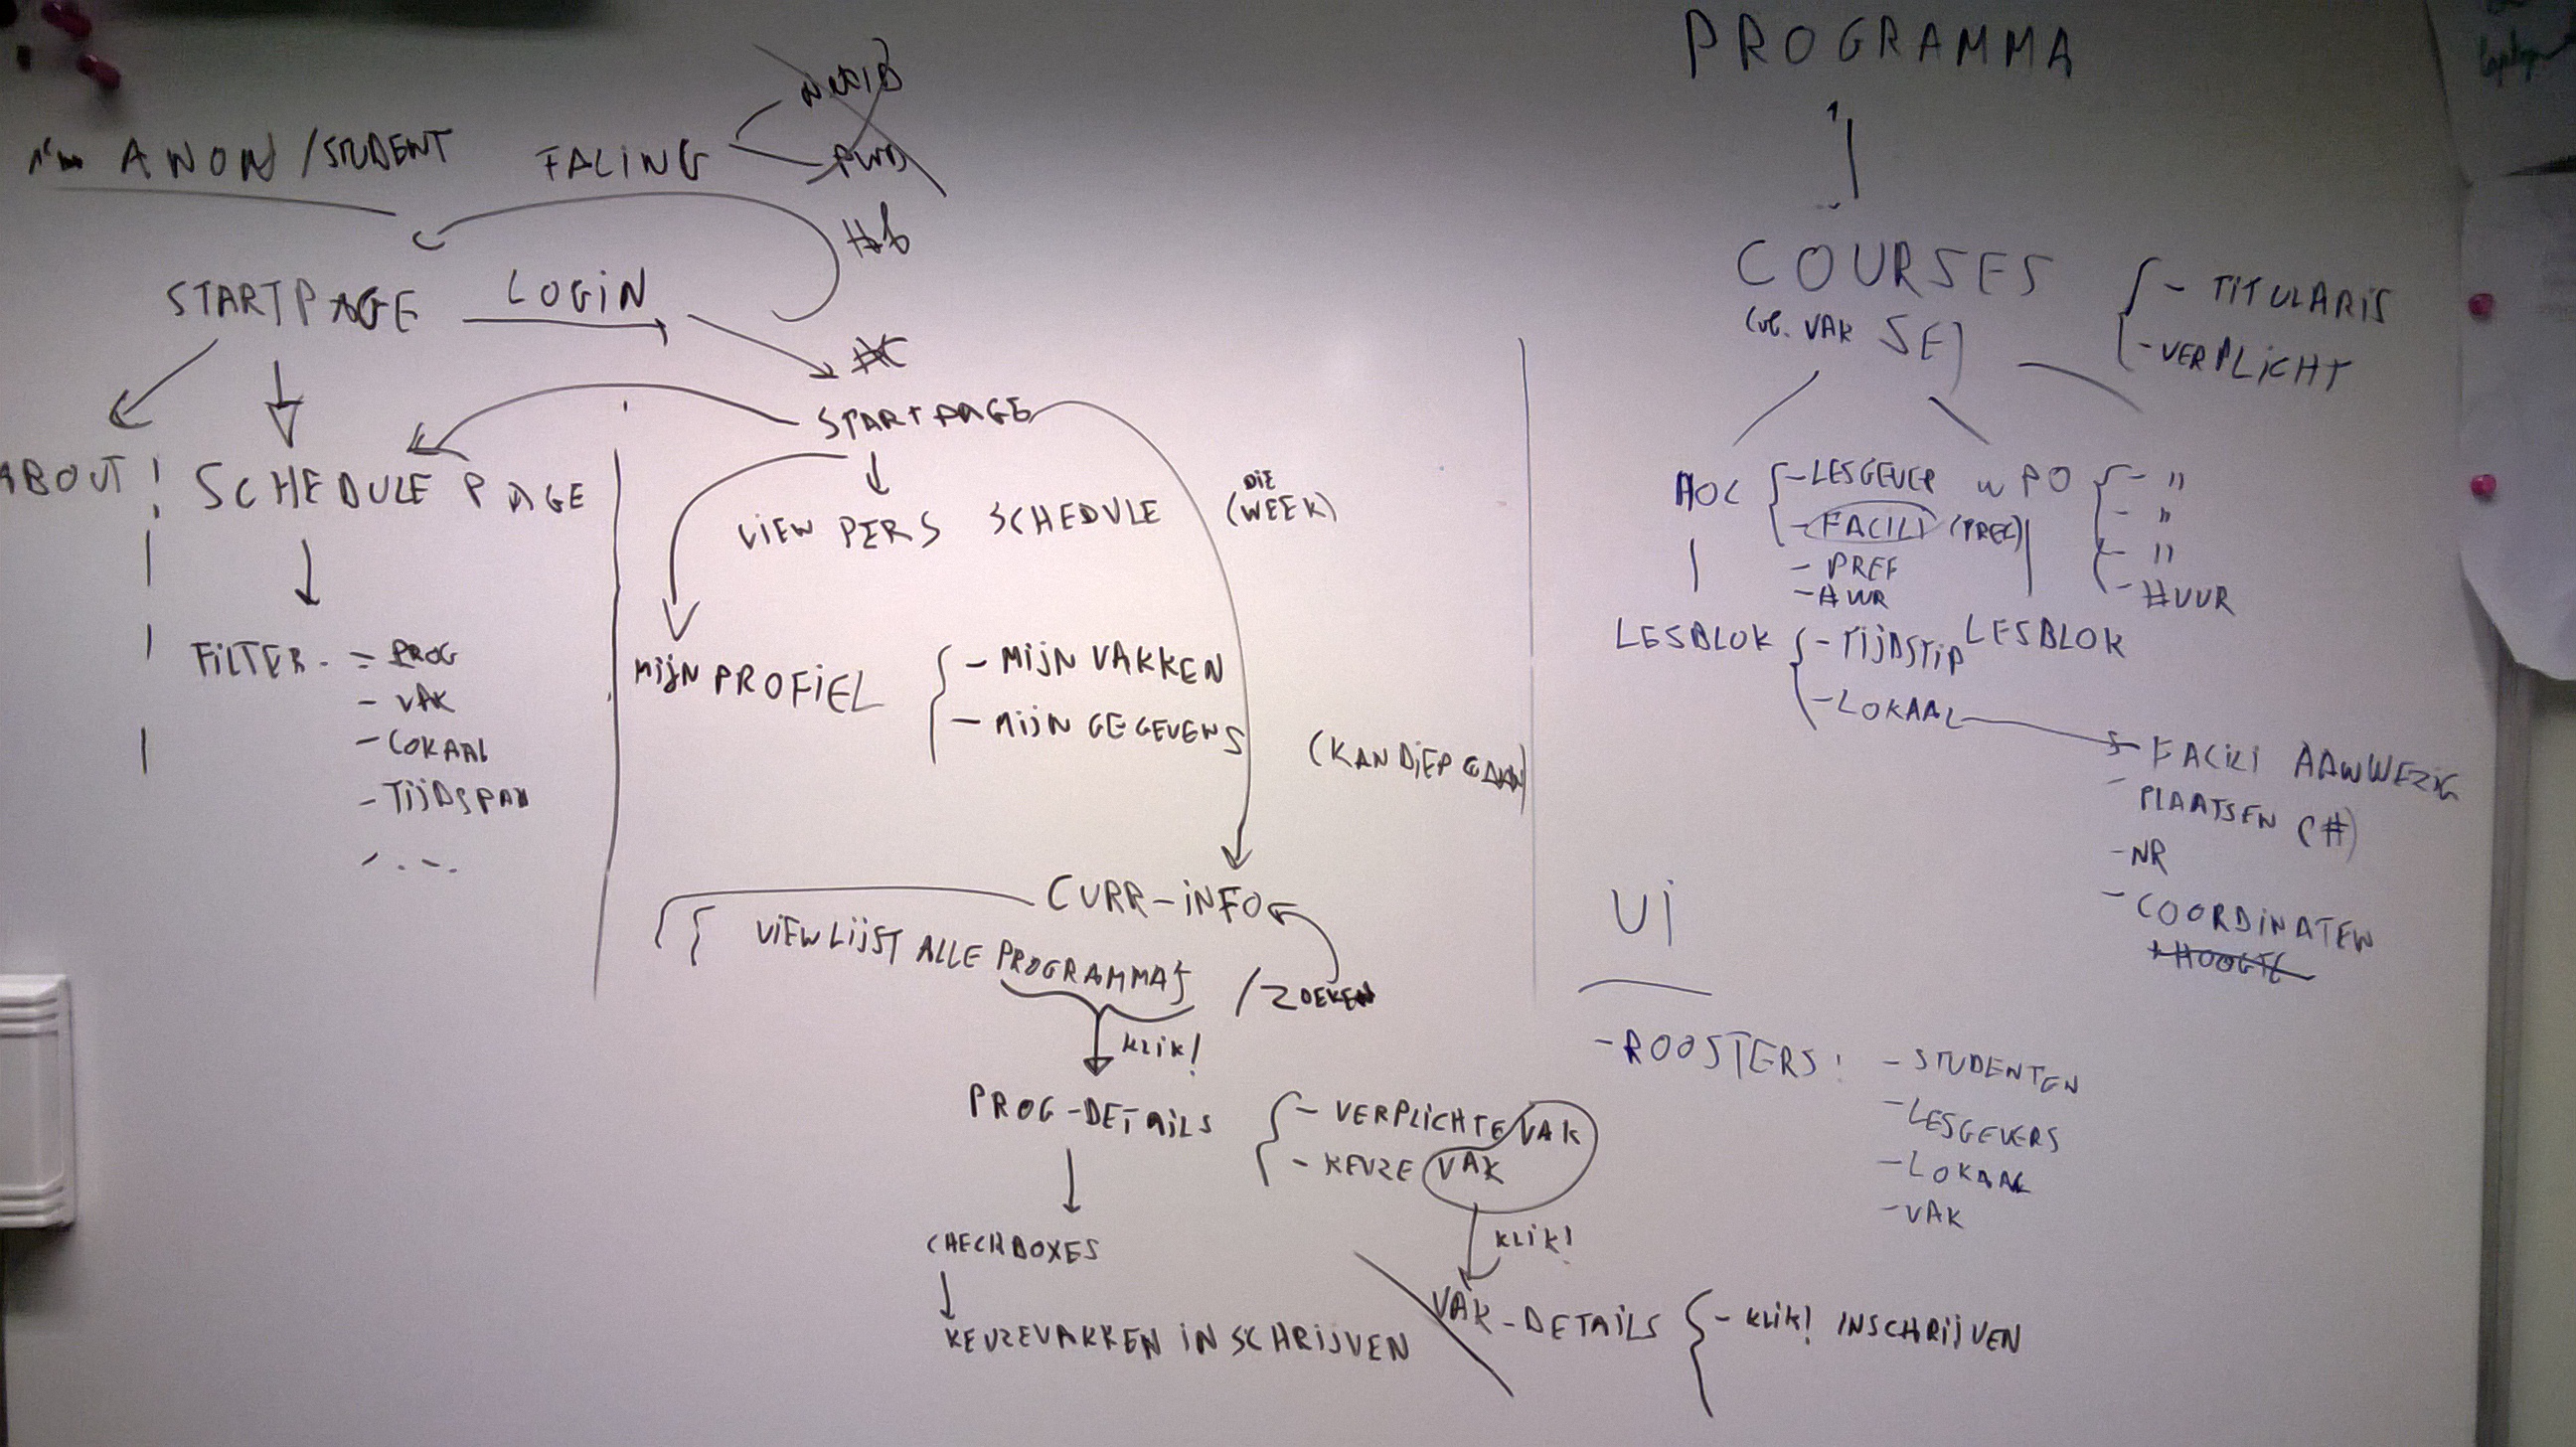 I'm ANON/STUDENT
FALING
PWD
STARTPAGE
LOGIN
STARTPAGE
ABOUT!
SCHEDULE PAGE
FILTER
- PROG
- VAK
- LOKAAL
- TIJDSPAN
- ...
VIEW PERS SCHEDULE (DIE WEEK)
MIJN PROFIEL
- MIJN VAKKEN
- MIJN GEGEVENS
(KAN DIEP GAAN)
CURR-INFO
VIEW LIJST ALLE PROGRAMMAS /ZOEKEN
KLIK!
PROG-DETAILS
- VERPLICHTE VAK
- KEUZE VAK
CHECKBOXES
KLIK!
KEUZEVAKKEN INSCHRIJVEN
VAK-DETAILS
- KLIK! INSCHRIJVEN
PROGRAMMA
COURSES
(vb. VAK SE)
- TITULARIS
- VERPLICHT
HOC
- LESGEVER
- FACILI (PREF)
- PREF
- #WR
WPO
- "
- "
- "
- #UUR
LESBLOK
- TIJDSTIP
- LOKAAL
LESBLOK
- FACILI AANWEZIG
- PLAATSEN (#)
- NR
- COORDINATEN
+HOOGTE
UI
- ROOSTERS:
- STUDENTEN
- LESGEVERS
- LOKAAL
- VAK